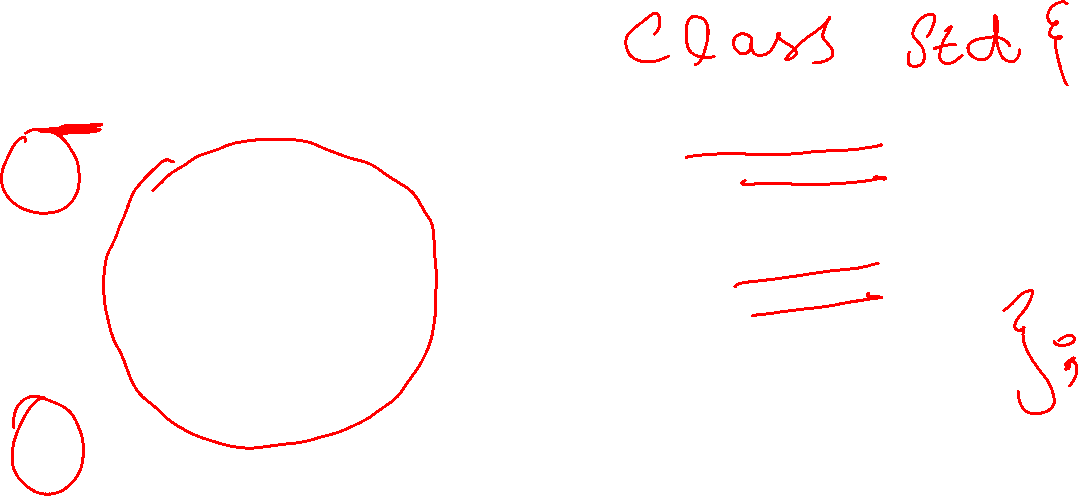 Class Std {
};